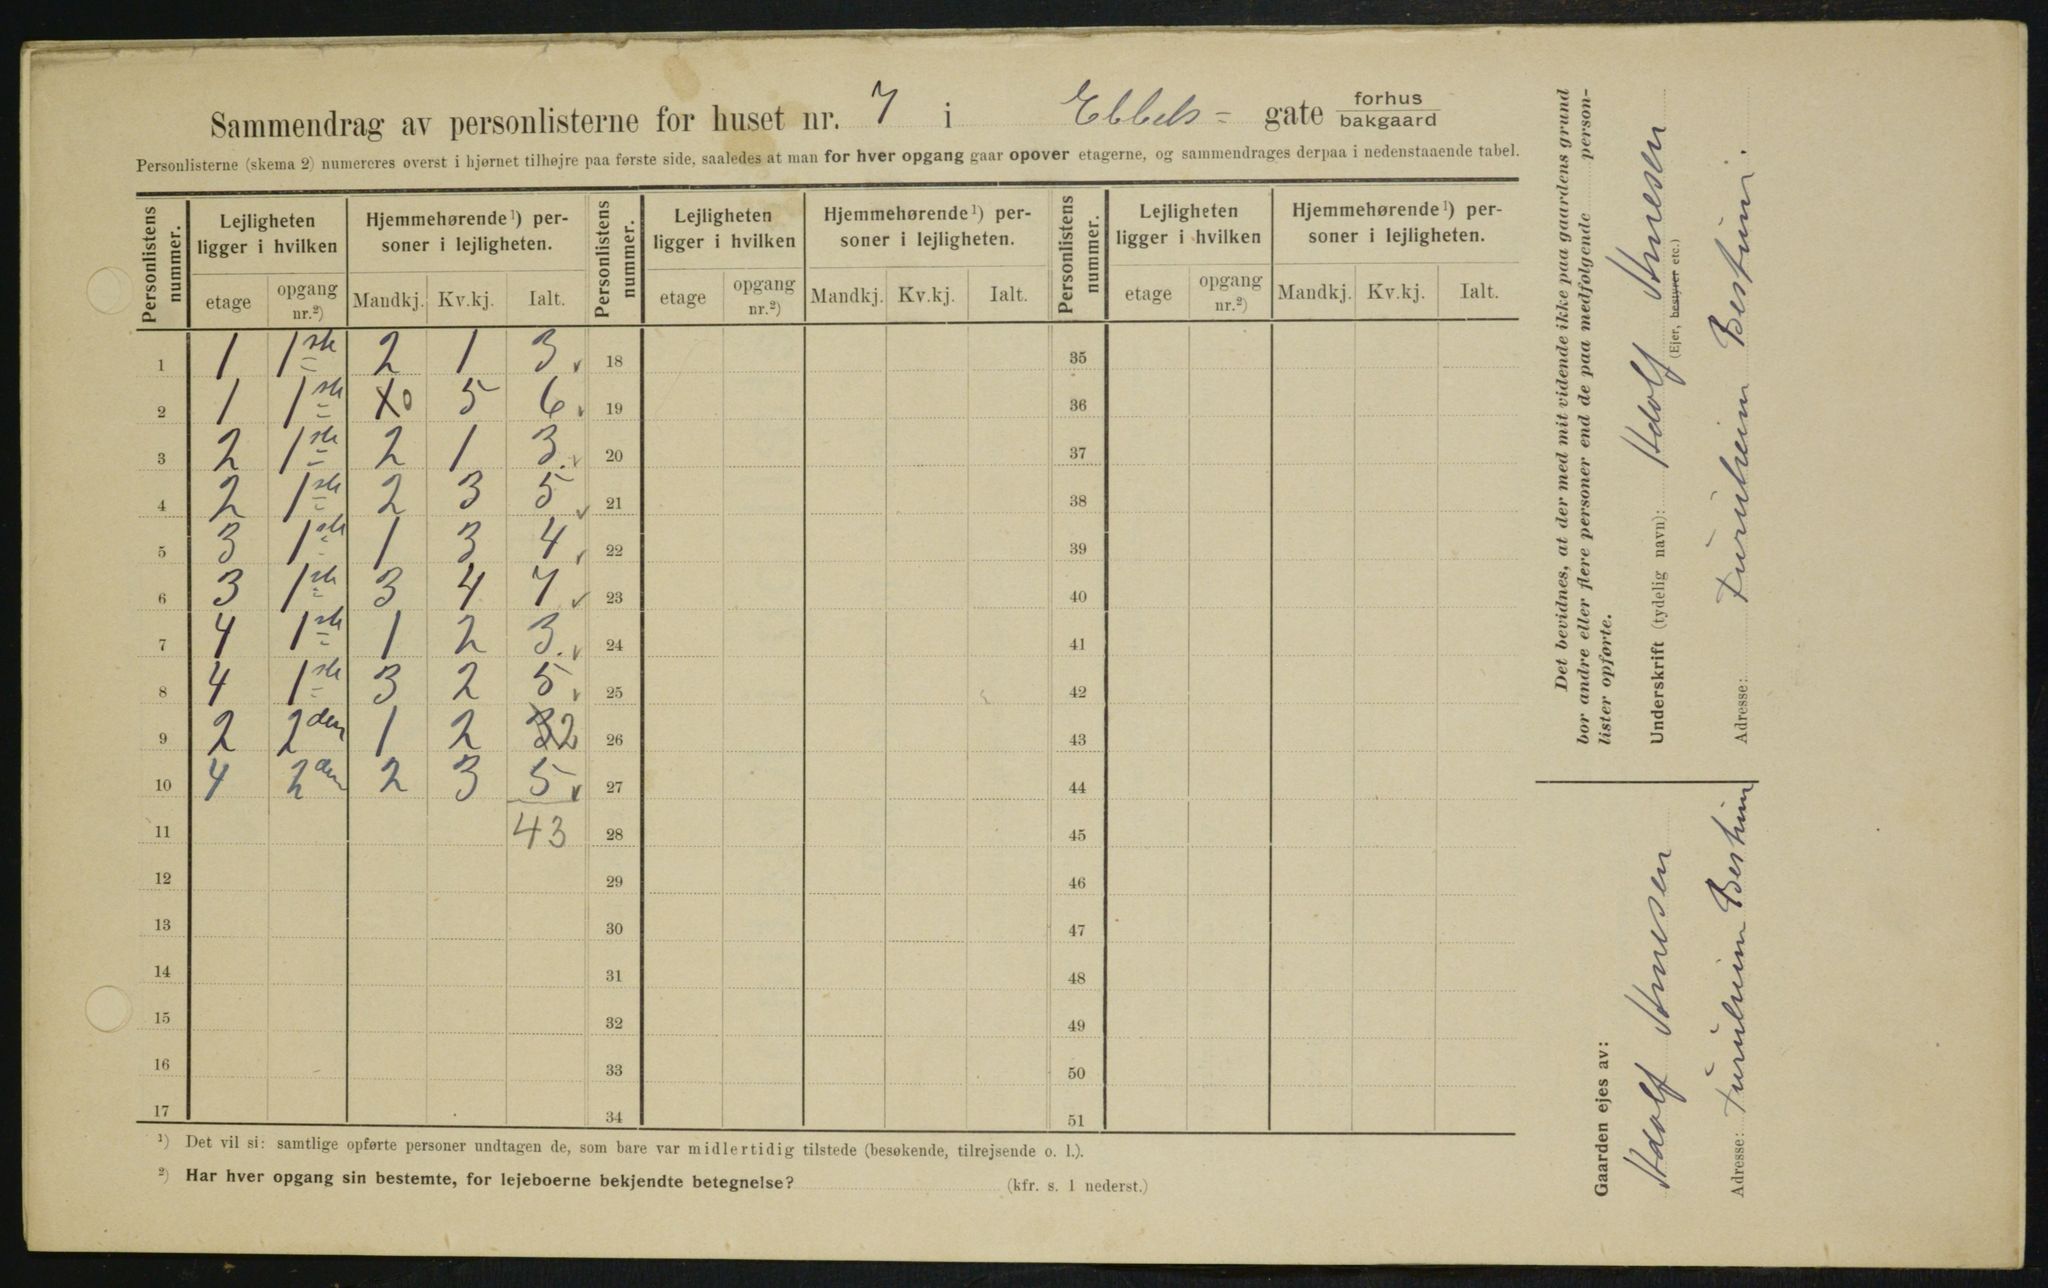 Sammendrag av personlisterne for huset nr. 7 i Ebbels- gate forhus bakgaard
Personlisterne (skema 2) numereres øverst i hjørnet tilhøjre paa første side, saaledes at man for hver opgang gaar opover etagerne, og sammendrages derpaa i nedenstaaende tabel.
Personlistens nummer. Lejligheten ligger i hvilken Hjemmehørende¹) personer i lejligheten. Personlistens nummer. Lejligheten ligger i hvilken Hjemmehørende¹) personer i lejligheten. Personlistens nummer. Lejligheten ligger i hvilken Hjemmehørende¹) personer i lejligheten.
etage opgang nr.²) Mandkj. Kv.kj. Ialt. etage opgang nr.²) Mandkj. Kv.kj. Ialt. etage opgang nr.²) Mandkj. Kv.kj. Ialt.
1 1 1ste 2 1 3 18 35
2 1 1ste 1 0 5 6 19 36
3 2 1ste 2 1 3. 20 37
4 2 1ste 2 3 5 21 38
5 3 1ste 1 3 4 22 39
6 3 1ste 3 4 7 23 40
7 4 1ste 1 2 3. 24 41
8 4 1ste 3 2 5 25 42
9 2 2den 1 2 3 2 26 43
10 4 2den 2 3 5 27 44
11 43 28 45
12 29 46
13 30 47
14 31 48
15 32 49
16 33 50
17 34 51
¹) Det vil si: samtlige opførte personer undtagen de, som bare var midlertidig tilstede (besøkende, tilrejsende o. l.).
²) Har hver opgang sin bestemte, for lejeboerne bekjendte betegnelse? (kfr. s. 1 nederst.)
Det bevidnes, at der med mit vidende ikke paa gaardens grund
bor andre eller flere personer end de paa medfølgende person-
lister opførte.
Underskrift (tydelig navn): Adolf Arnesen
(Ejer, bestyrer etc.)
Adresse: Furuheim Bestum.
Gaarden ejes av:
Adolf Arnesen
Adresse: Furuheim Bestum